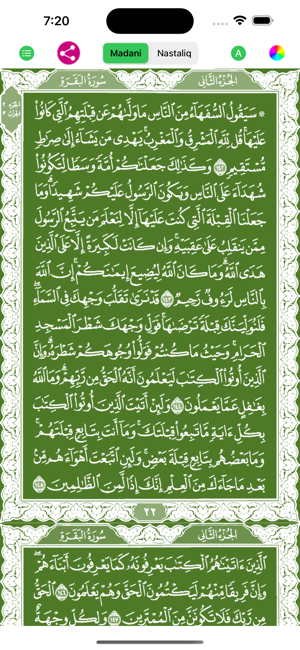 7:20
Madani
Nastaliq
A
سُورَةُ البَقَرَة
الجُزءُ الثَّانِي
۞ سَيَقُولُ ٱلسُّفَهَآءُ مِنَ ٱلنَّاسِ مَا وَلَّىٰهُمْ عَن قِبْلَتِهِمُ ٱلَّتِى كَانُوا۟
عَلَيْهَا ۚ قُل لِّلَّهِ ٱلْمَشْرِقُ وَٱلْمَغْرِبُ ۚ يَهْدِى مَن يَشَآءُ إِلَىٰ صِرَٰطٍ
مُّسْتَقِيمٍ ١٤٢ وَكَذَٰلِكَ جَعَلْنَٰكُمْ أُمَّةً وَسَطًا لِّتَكُونُوا۟
شُهَدَآءَ عَلَى ٱلنَّاسِ وَيَكُونَ ٱلرَّسُولُ عَلَيْكُمْ شَهِيدًا ۗ وَمَا
جَعَلْنَا ٱلْقِبْلَةَ ٱلَّتِى كُنتَ عَلَيْهَآ إِلَّا لِنَعْلَمَ مَن يَتَّبِعُ ٱلرَّسُولَ
مِمَّن يَنقَلِبُ عَلَىٰ عَقِبَيْهِ ۚ وَإِن كَانَتْ لَكَبِيرَةً إِلَّا عَلَى ٱلَّذِينَ
هَدَى ٱللَّهُ ۗ وَمَا كَانَ ٱللَّهُ لِيُضِيعَ إِيمَٰنَكُمْ ۚ إِنَّ ٱللَّهَ
بِٱلنَّاسِ لَرَءُوفٌ رَّحِيمٌ ١٤٣ قَدْ نَرَىٰ تَقَلُّبَ وَجْهِكَ فِى ٱلسَّمَآءِ ۖ
فَلَنُوَلِّيَنَّكَ قِبْلَةً تَرْضَىٰهَا ۚ فَوَلِّ وَجْهَكَ شَطْرَ ٱلْمَسْجِدِ
ٱلْحَرَامِ ۚ وَحَيْثُ مَا كُنتُمْ فَوَلُّوا۟ وُجُوهَكُمْ شَطْرَهُۥ ۗ وَإِنَّ
ٱلَّذِينَ أُوتُوا۟ ٱلْكِتَٰبَ لَيَعْلَمُونَ أَنَّهُ ٱلْحَقُّ مِن رَّبِّهِمْ ۗ وَمَا ٱللَّهُ
بِغَٰفِلٍ عَمَّا يَعْمَلُونَ ١٤٤ وَلَئِنْ أَتَيْتَ ٱلَّذِينَ أُوتُوا۟ ٱلْكِتَٰبَ
بِكُلِّ ءَايَةٍ مَّا تَبِعُوا۟ قِبْلَتَكَ ۚ وَمَآ أَنتَ بِتَابِعٍ قِبْلَتَهُمْ ۚ
وَمَا بَعْضُهُم بِتَابِعٍ قِبْلَةَ بَعْضٍ ۚ وَلَئِنِ ٱتَّبَعْتَ أَهْوَآءَهُم مِّنۢ
بَعْدِ مَا جَآءَكَ مِنَ ٱلْعِلْمِ ۙ إِنَّكَ إِذًا لَّمِنَ ٱلظَّٰلِمِينَ ١٤٥
٢٢
سُورَةُ البَقَرَة
الجُزءُ الثَّانِي
ٱلَّذِينَ ءَاتَيْنَٰهُمُ ٱلْكِتَٰبَ يَعْرِفُونَهُۥ كَمَا يَعْرِفُونَ أَبْنَآءَهُمْ ۖ
وَإِنَّ فَرِيقًا مِّنْهُمْ لَيَكْتُمُونَ ٱلْحَقَّ وَهُمْ يَعْلَمُونَ ١٤٦ ٱلْحَقُّ
مِن رَّبِّكَ ۖ فَلَا تَكُونَنَّ مِنَ ٱلْمُمْتَرِينَ ١٤٧ وَلِكُلٍّ وِجْهَةٌ